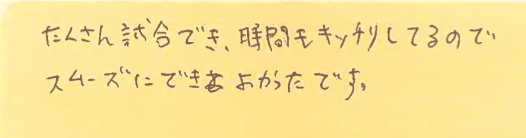 たくさん試合でき、時間もキッチリしてるので
スムーズにできよかったです。